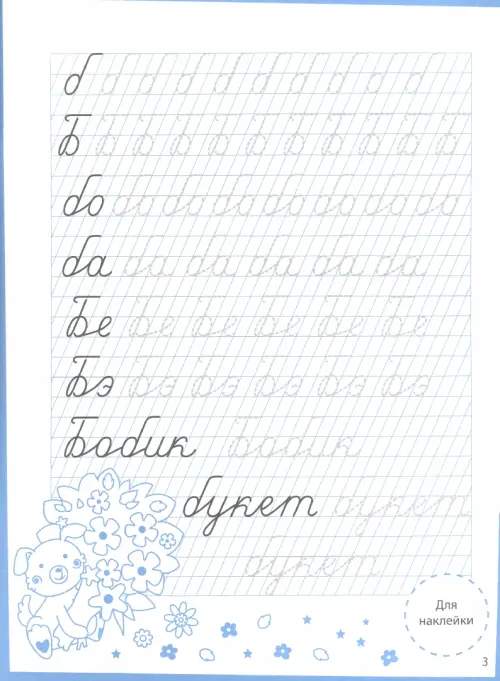 б б б б б б б б б б
Б Б Б Б Б Б Б Б Б Б Б
бо бо бо бо бо бо бо бо
ба ба ба ба ба ба
Бе Бе Бе Бе Бе Бе
Бэ Бэ Бэ Бэ Бэ Бэ
Бобик Бобик
букет букет
букет
Для
наклейки
3